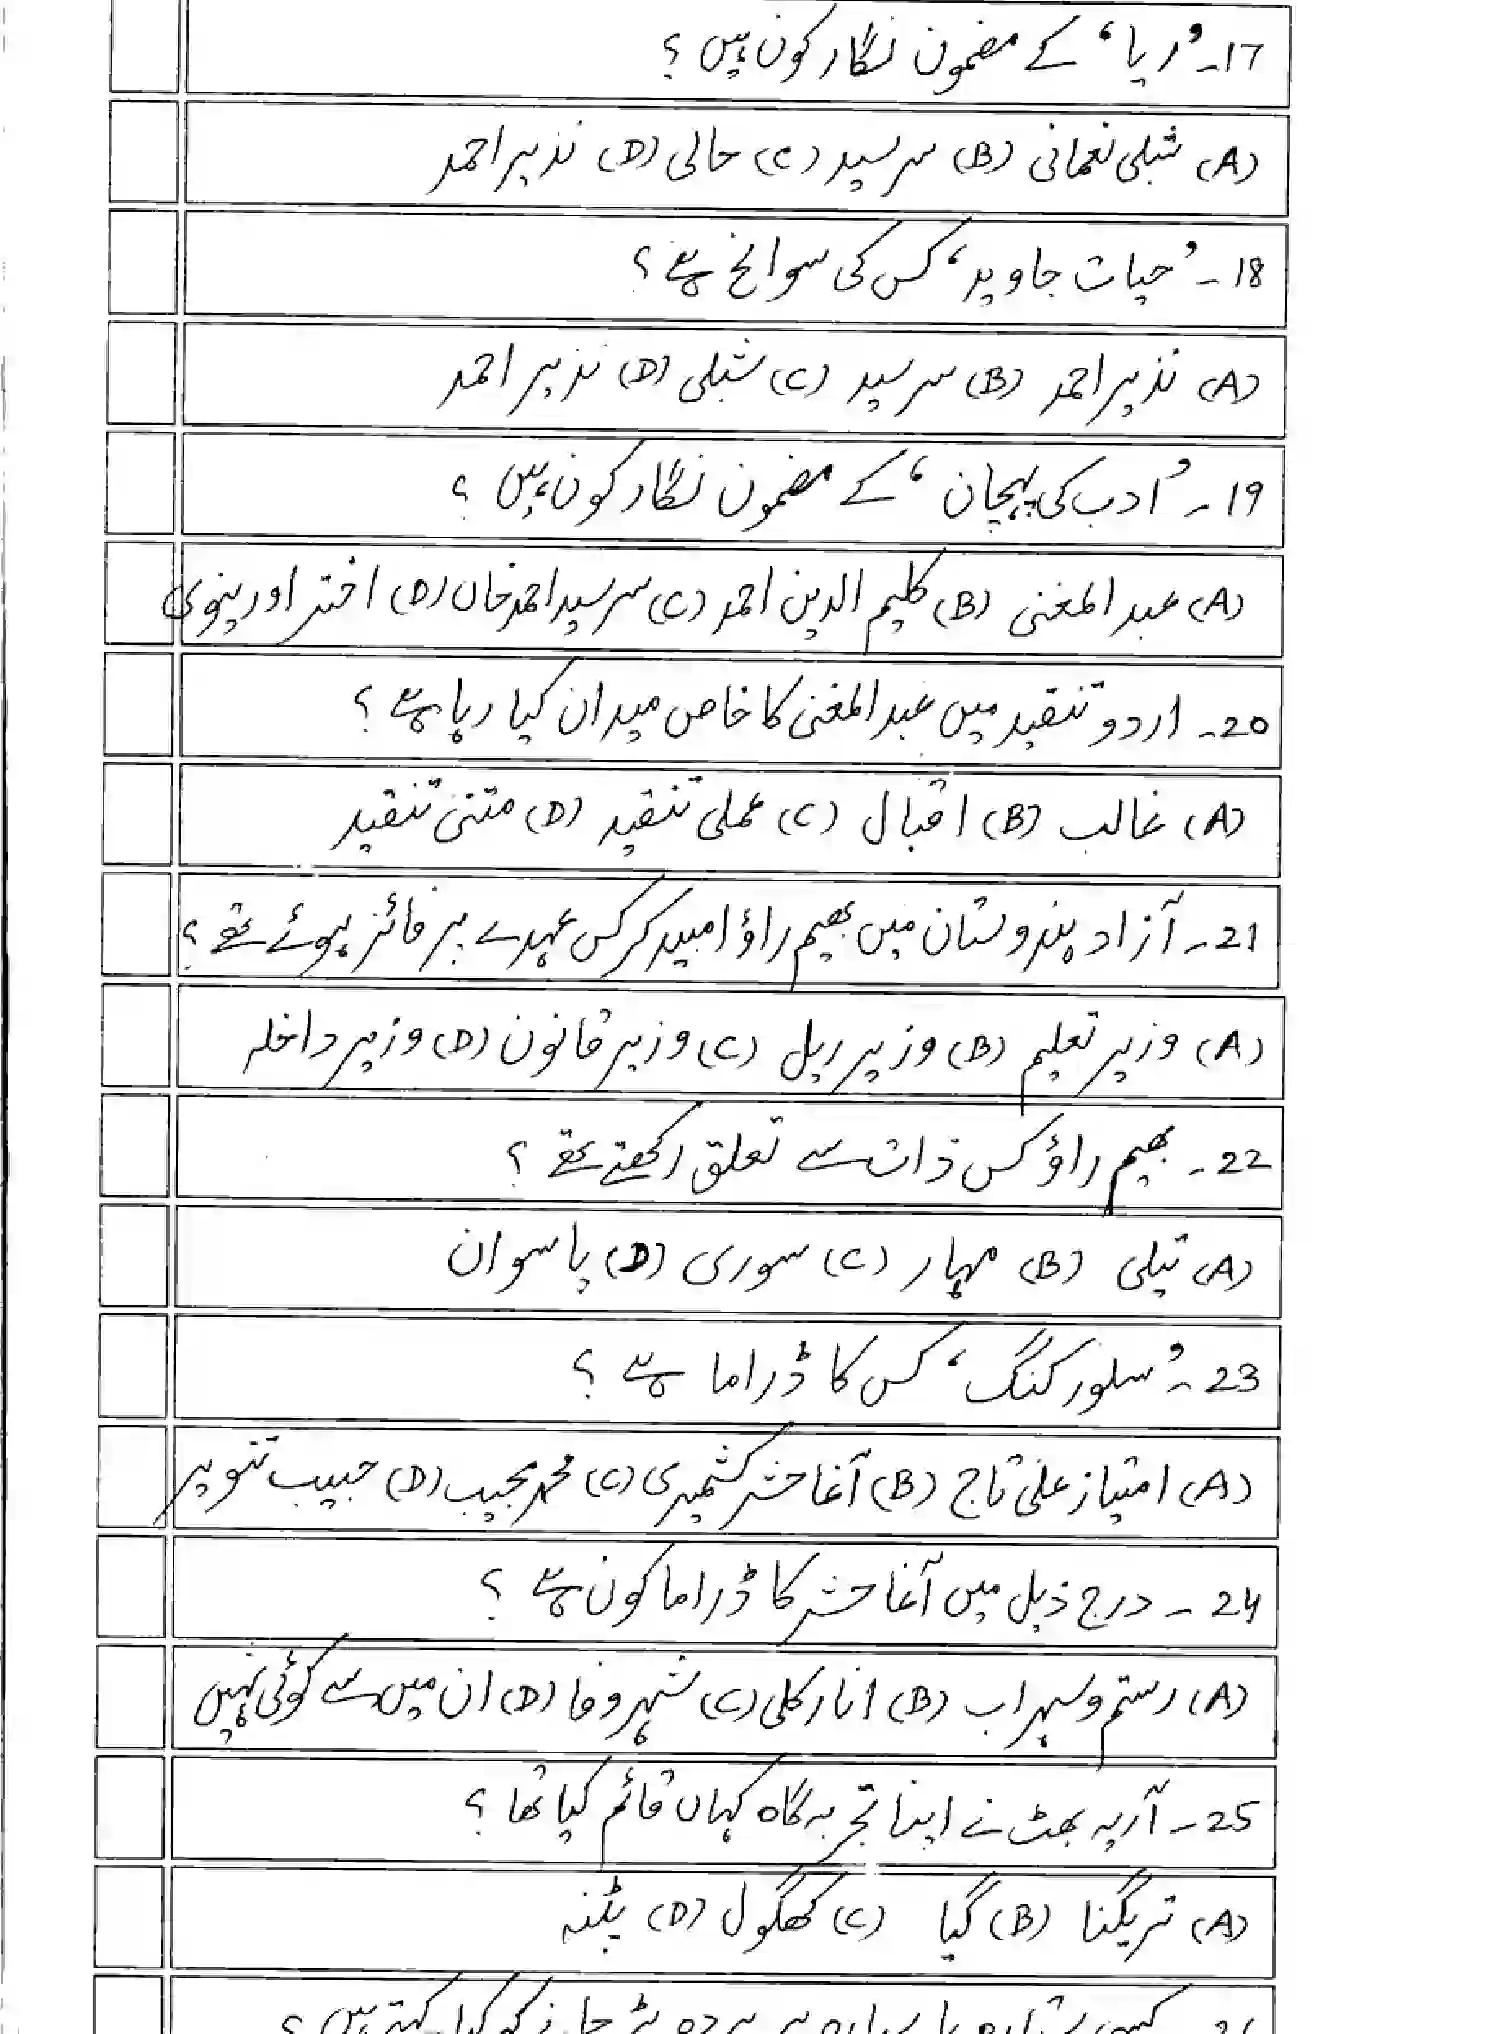 17۔ ’ریا‘ کے مضمون نگار کون ہیں ؟
(A) شبلی نعمانی (B) سرسید (C) حالی (D) نذیر احمد
18۔ ’حیات جاوید‘ کس کی سوانح ہے ؟
(A) نذیر احمد (B) سرسید (C) شبلی (D) نذیر احمد
19۔ ’ادب کی پہچان‘ کے مضمون نگار کون ہیں ؟
(A) عبدالمغنی (B) کلیم الدین احمد (C) سرسید احمد خاں (D) اختر اورینوی
20۔ اردو تنقید میں عبدالمغنی کا خاص میدان کیا رہا ہے ؟
(A) غالب (B) اقبال (C) عملی تنقید (D) متنی تنقید
21۔ آزاد ہندوستان میں بھیم راؤ امبیدکر کس عہدے پر فائز ہوئے تھے ؟
(A) وزیر تعلیم (B) وزیر ریل (C) وزیر قانون (D) وزیر داخلہ
22۔ بھیم راؤ کس ذات سے تعلق رکھتے تھے ؟
(A) تیلی (B) مہار (C) سوری (D) پاسوان
23۔ ’سلور کنگ‘ کس کا ڈراما ہے ؟
(A) امتیاز علی تاج (B) آغا حشر کشمیری (C) محمد مجیب (D) حبیب تنویر
24۔ درج ذیل میں آغا حشر کا ڈراما کون ہے ؟
(A) رستم و سہراب (B) انارکلی (C) شہر وفا (D) ان میں سے کوئی نہیں
25۔ آریہ بھٹ نے اپنا تجربہ گاہ کہاں قائم کیا تھا ؟
(A) تریگنا (B) گیا (C) کھگول (D) پٹنہ